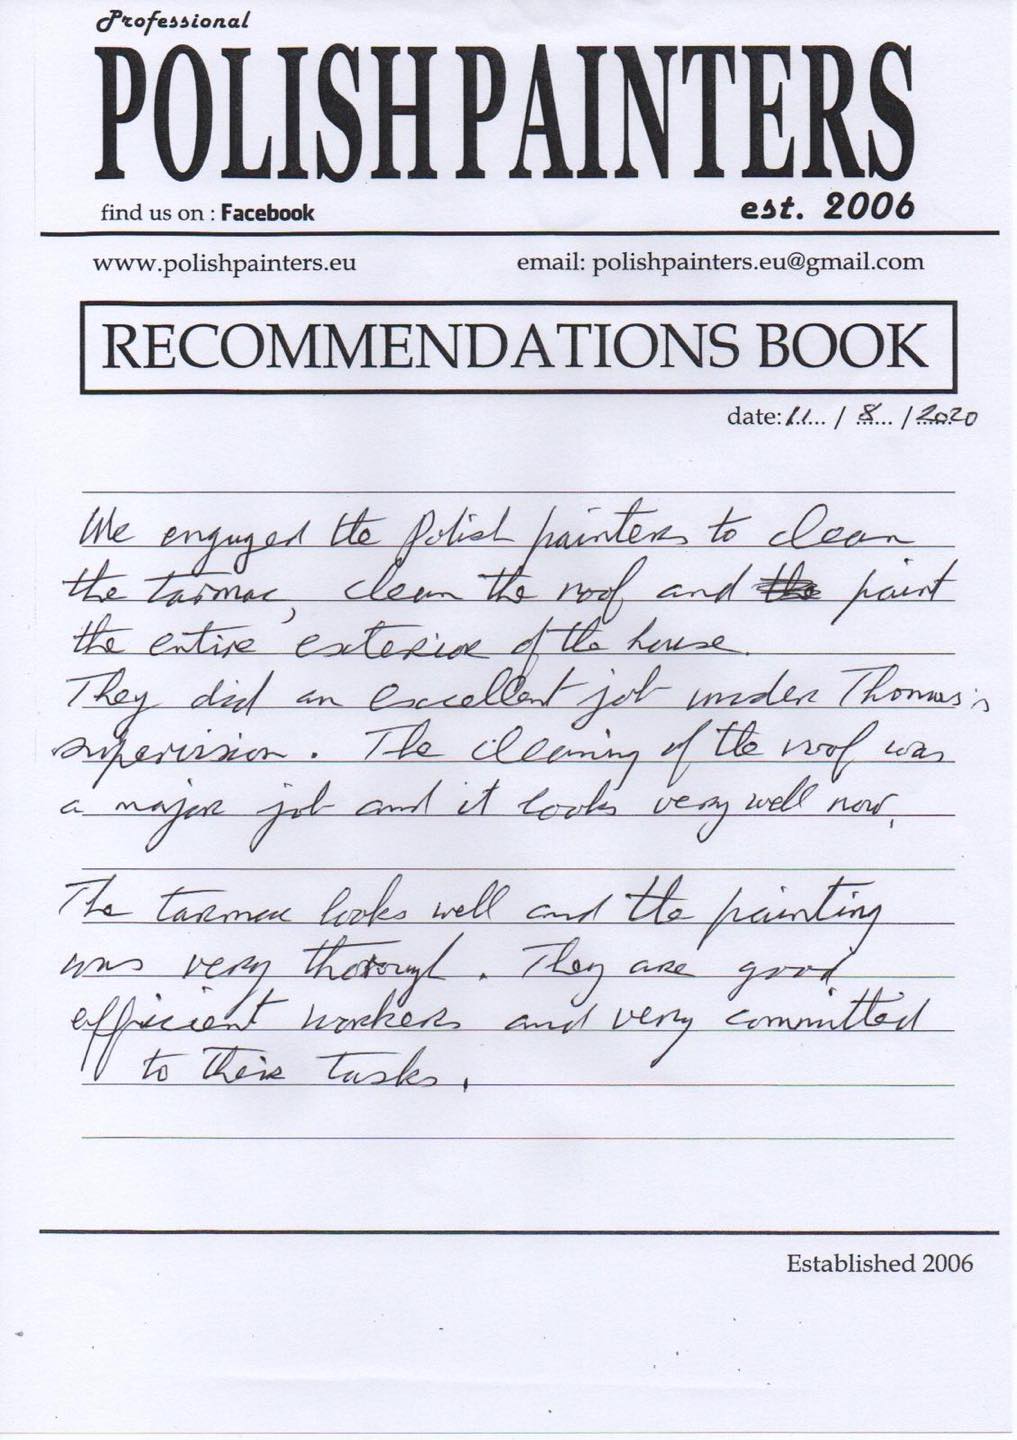 Professional
POLISH PAINTERS
find us on : Facebook
est. 2006
www.polishpainters.eu
email: polishpainters.eu@gmail.com
RECOMMENDATIONS BOOK
date: 11 / 8 / 2020
We engaged the Polish painters to clean
the tarmac, clean the roof and the paint
the entire exterior of the house.
They did an excellent job under Thomas's
supervision. The cleaning of the roof was
a major job and it looks very well now.
The tarmac looks well and the painting
was very thorough. They are good
efficient workers and very committed
to their tasks.
Established 2006